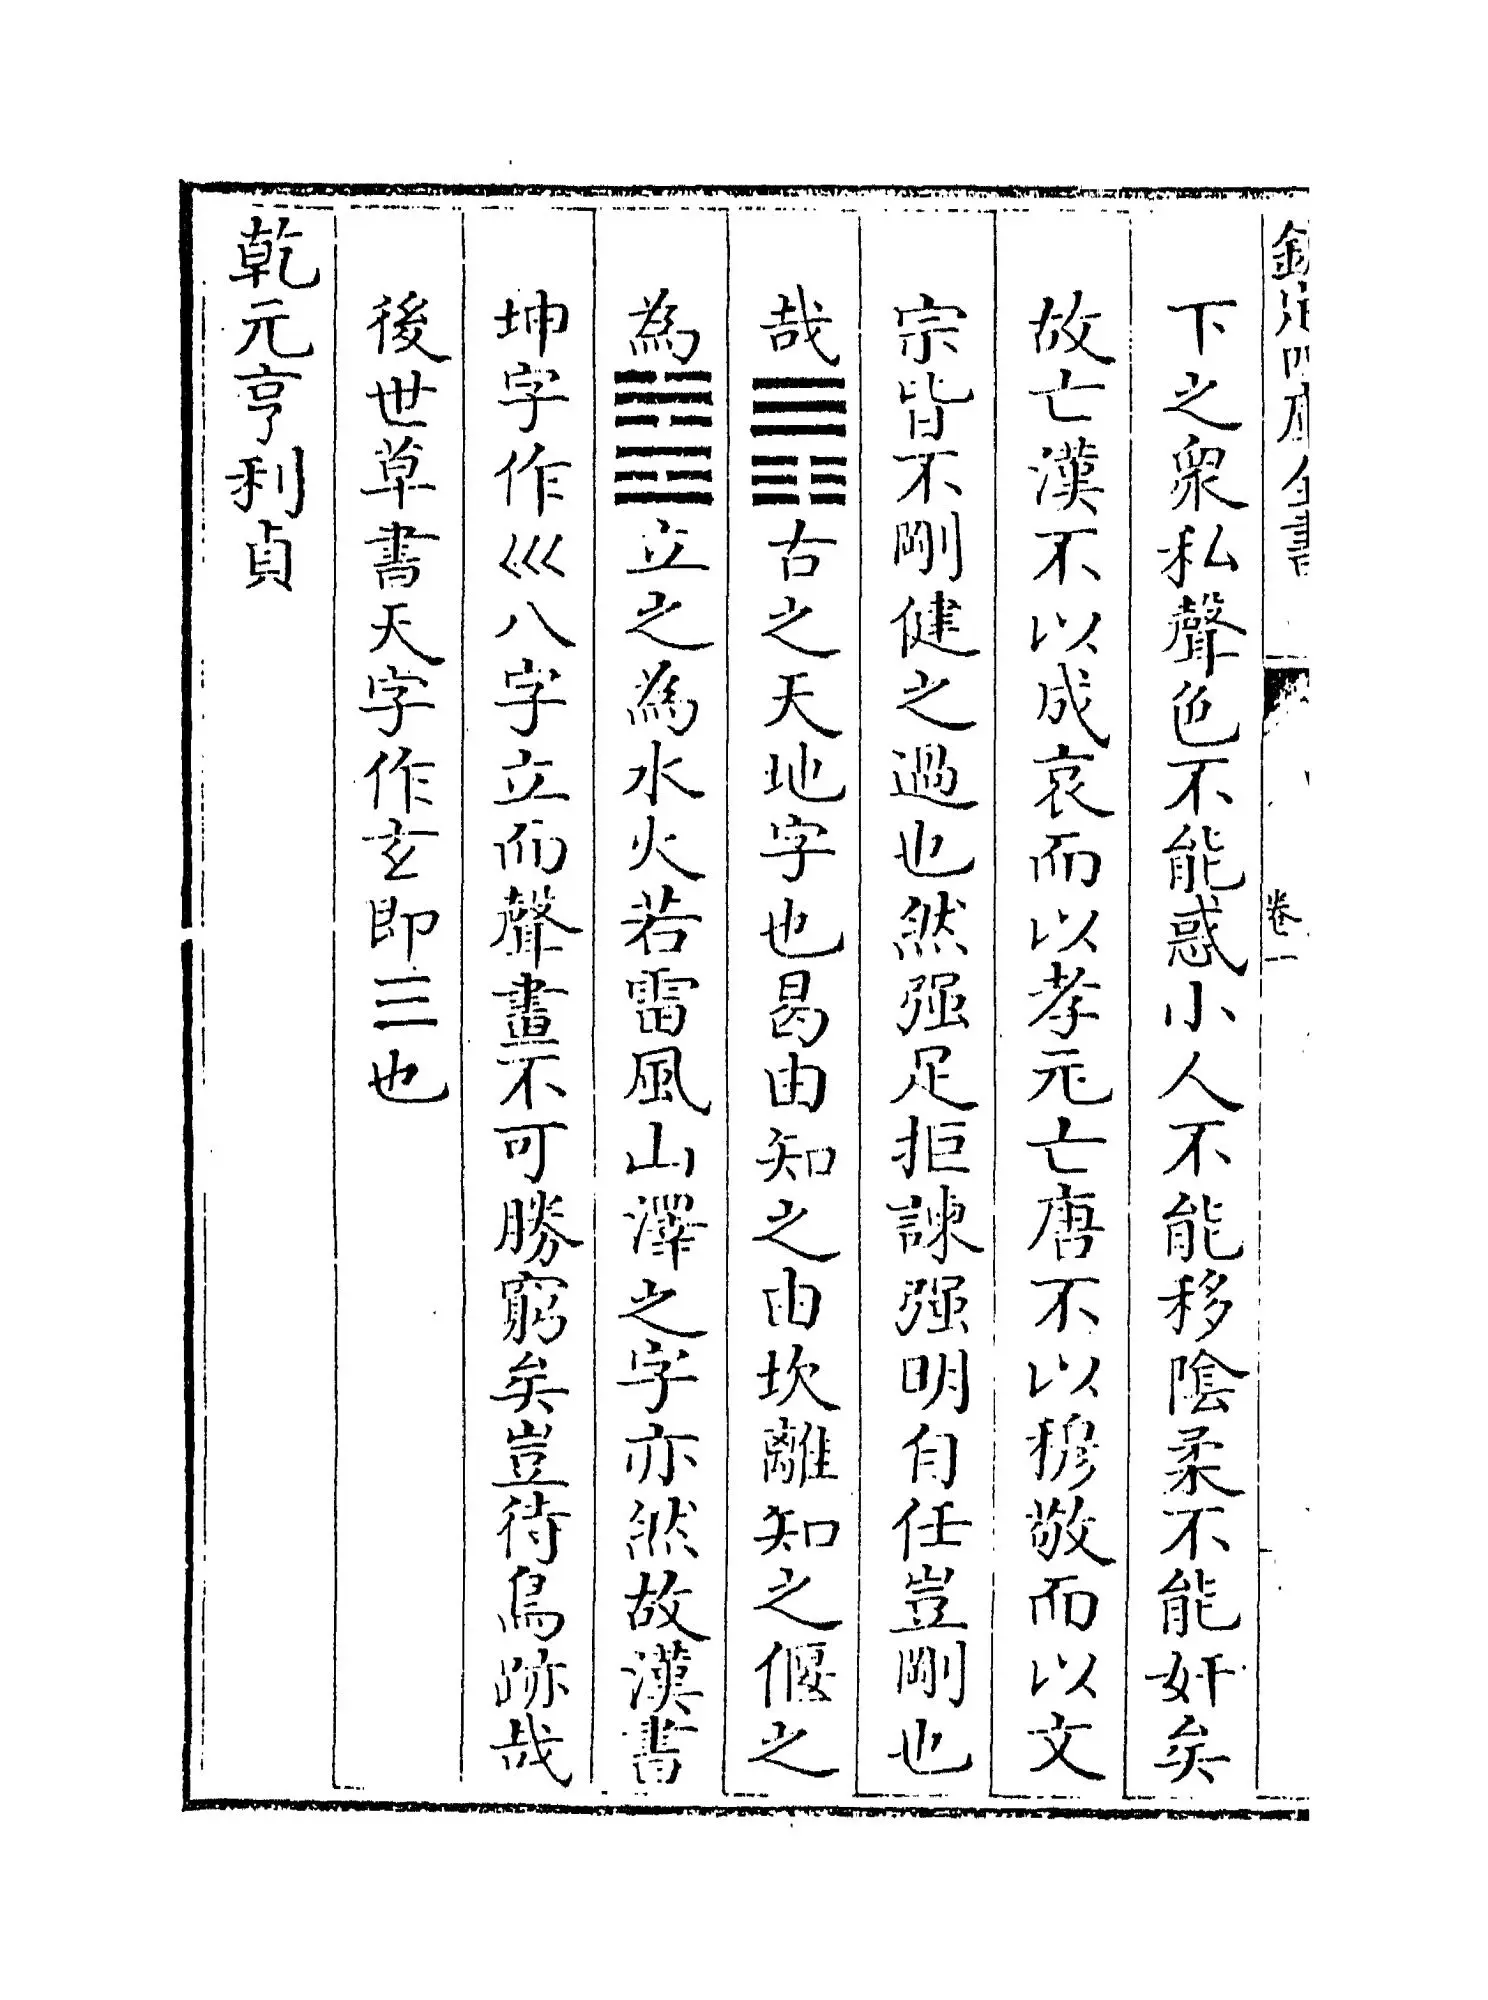 欽定四庫全書 卷一
下之衆私聲色不能惑小人不能移陰柔不能奸矣
故亡漢不以成哀而以孝元亡唐不以穆敬而以文
宗皆不剛健之過也然强足拒諫强明自任豈剛也
哉☰☷古之天地字也曷由知之由坎離知之偃之
為☵☲立之為水火若雷風山澤之字亦然故漢書
坤字作巛八字立而聲畫不可勝窮矣豈待鳥跡哉
後世草書天字作玄即三也
乾元亨利貞